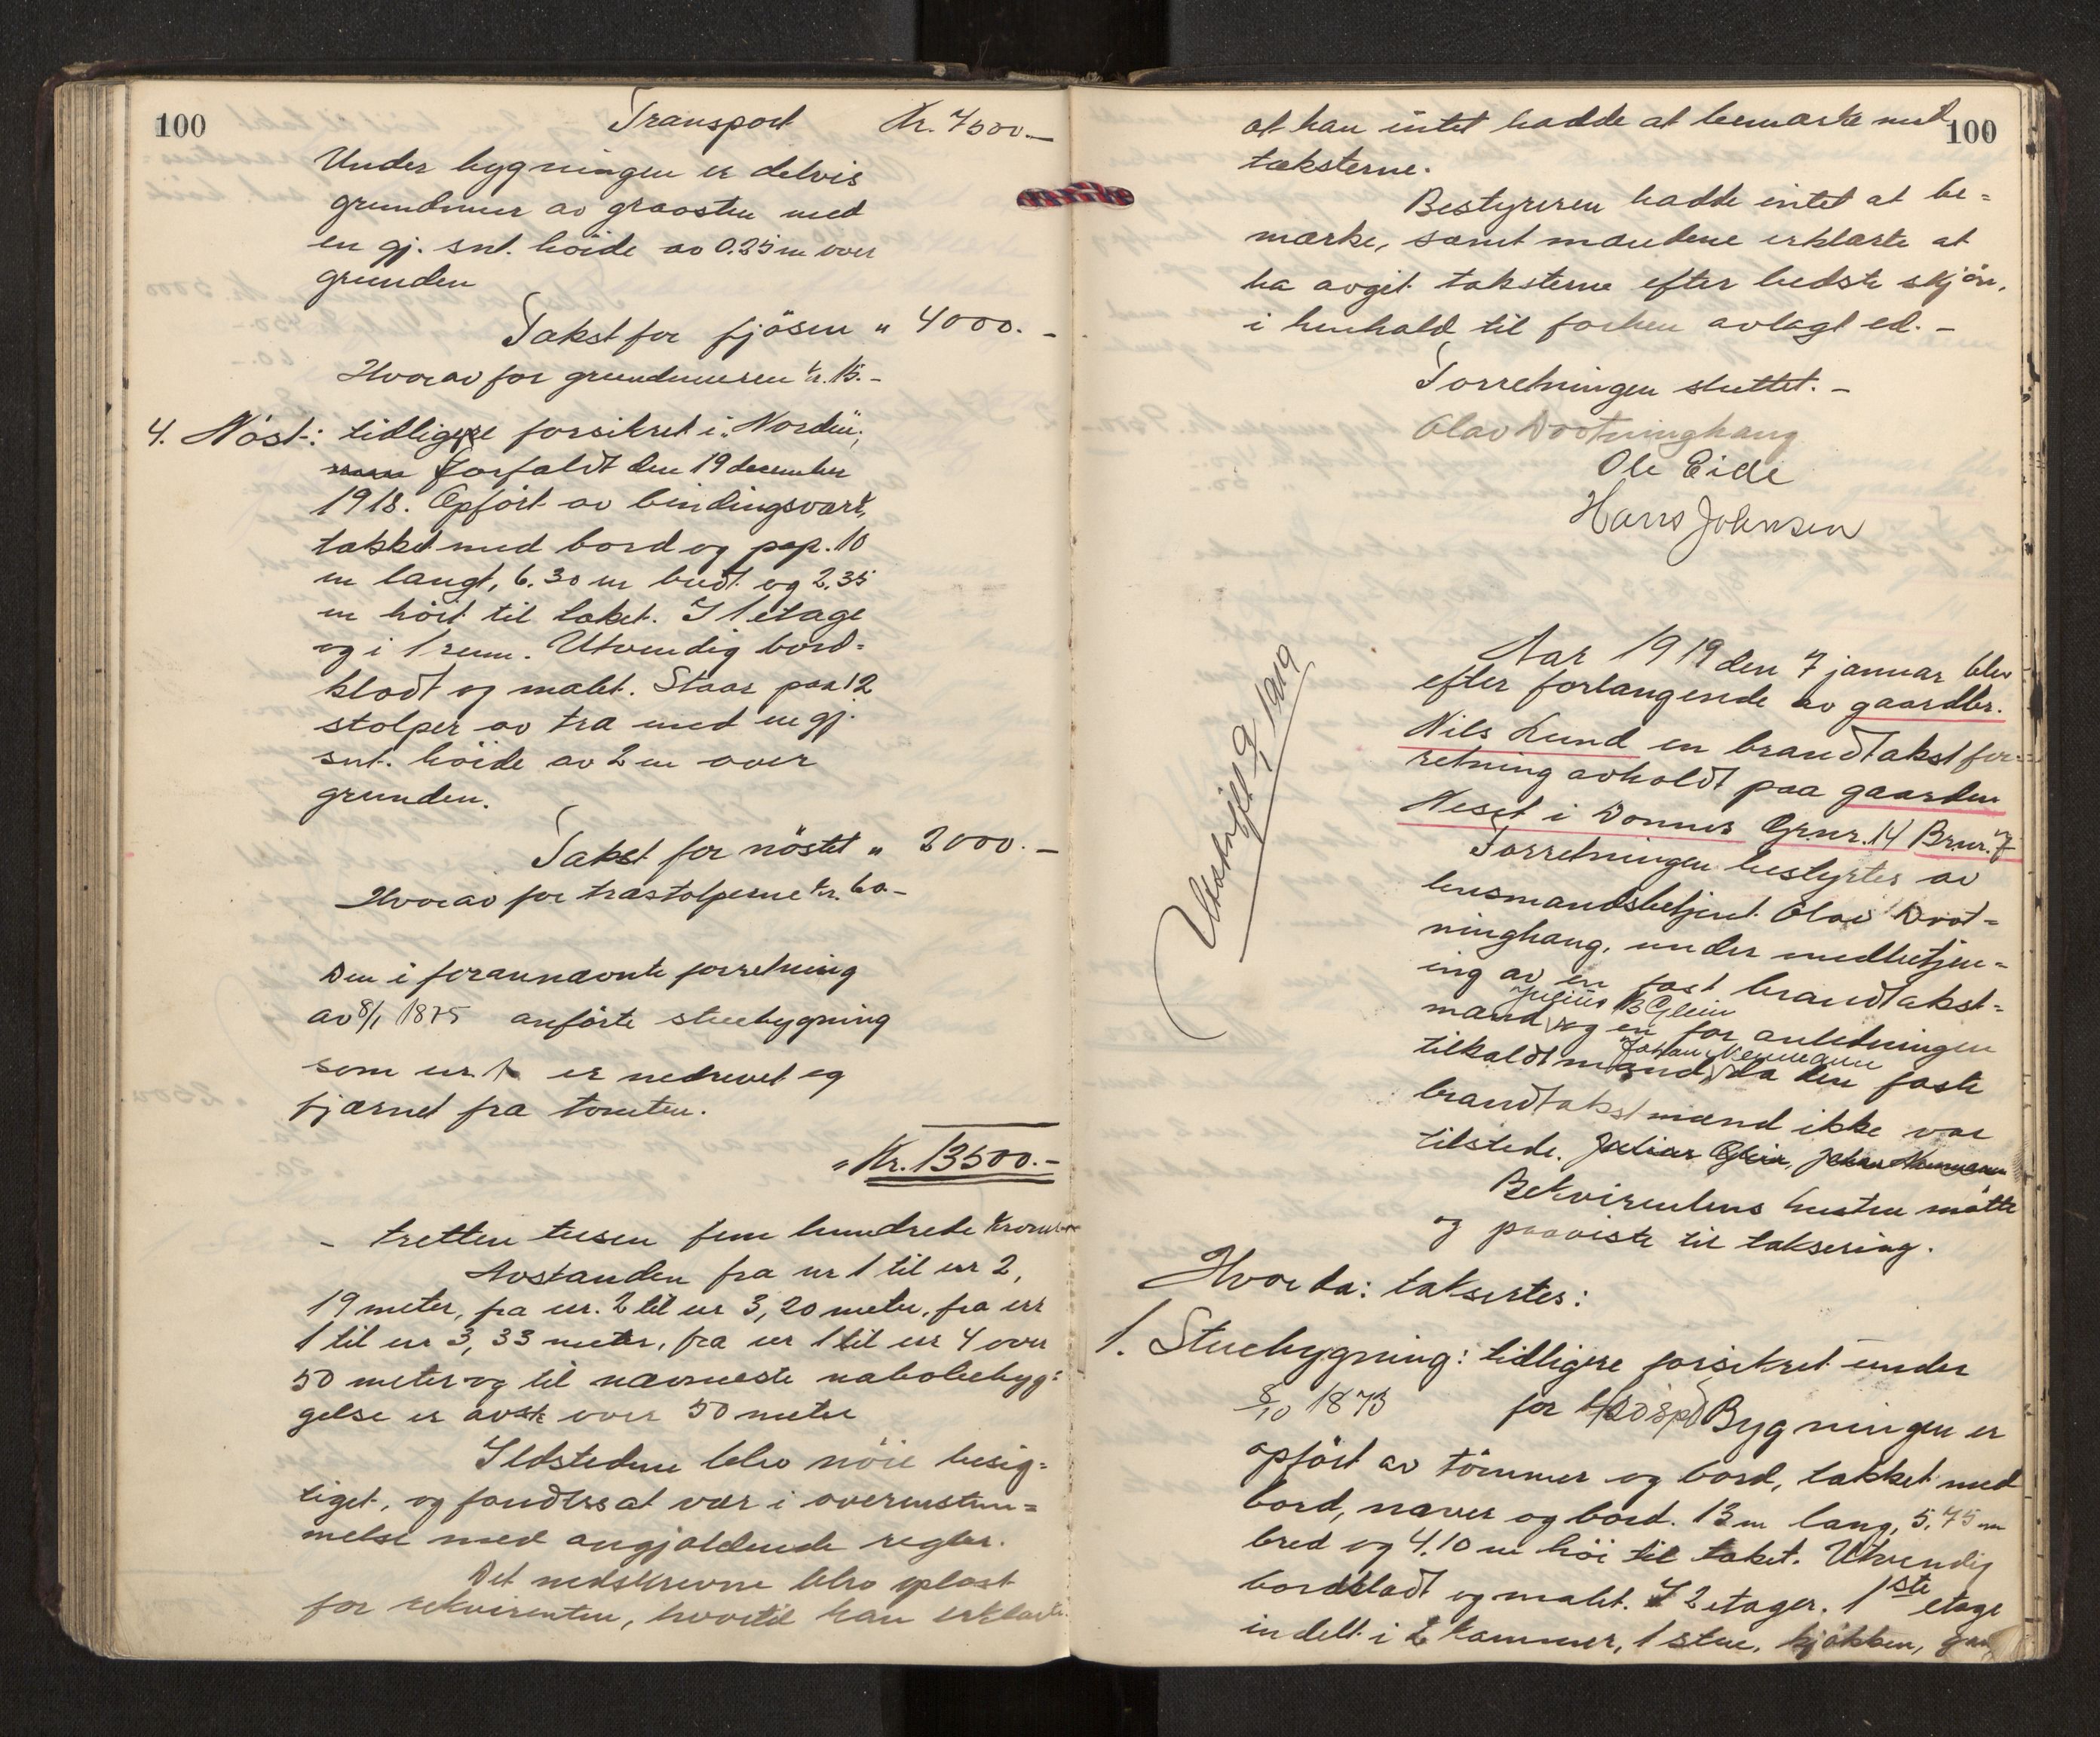 100
Transport Kr. 7500.—
Under bygningen er delvis
grundmur av graasten med
en gj. snt. höide av 0.25 m over
grunden
Takst for fjösen " 4000.—
Hvorav for grundmuren kr. 15.—
4. Nöst: tidligere forsikret i "Norden",
forfaldt den 19 december
1918. Opfört av bindingsverk,
tækket med bord og pap. 10
m langt, 6.30 m bredt og 2.35
m höit til taket. I 1 etage
og i 1 rum. Utvendig bord-
klædt og malet. Staar paa 12
stolper av træ med en gj.
snt. höide av 2 m over
grunden.
Takst for nöstet " 2000.—
Hvorav for træstolperne kr. 60—
Den i forannævnte forretning
av 8/1 1875 anförte stuebygning
som nr. 1 er nedrevet og
fjærnet fra tomten.
" Kr. 13500.—
— tretten tusen fem hundrede kroner—
Avstanden fra nr 1 til nr 2,
19 meter, fra nr. 2 til nr 3, 20 meter, fra nr
1 til nr 3, 33 meter, fra nr 1 til nr 4 over
50 meter og til nærmeste nabobebyg-
gelse er avst. over 50 meter
Ildstedene blev nöie besig-
tiget, og fandtes at være i overenstem-
melse med angjældende regler.
Det nedskrevne blev oplæst
for rekvirenten, hvortil han erklærte
100
at han intet hadde at bemærke med
taksterne.
Bestyreren hadde intet at be-
mærke, samt mændene erklærte at
ha avgit taksterne efter bedste skjön,
i henhold til forhen avlagt ed. —
Forretningen sluttet. —
Olav Drotninghaug
Ole Eide
Hans Johnsen
Utskrift 9/1 1919
Aar 1919 den 7 januar blev
efter forlangende av gaardbr.
Nils Lund en brandtakstfor-
retning avholdt paa gaarden
Neset i Dønnes Grnr. 14 Brnr. 7
Forretningen bestyrtes av
lensmandsbetjent Olav Drot-
ninghaug, under medbetjen-
ing av en fast brandtakst-
Julius B Glein
mand og en for anledningen
Johan Neumann
tilkaldt mand da den faste
brandtakstmand ikke var
tilstede. Julius Glein, Johan Neumann
Rekvirentens hustru mötte
og paaviste til taksering.
Hvorda: taksertes:
1. Stuebygning: tidligere forsikret under
8/10 1873 for 400 spd Bygningen er
opfört av tömmer og bord, tækket med
bord, næver og bord. 13 m lang, 5.75 m
bred og 4.10 m höi til taket. Utvendig
bordklædt og malet. I 2 etager. 1ste etage
indelt i 2 kammer, 1 stue, kjökken, gang